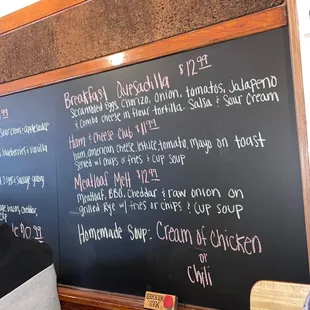 Breakfast Quesadilla $12.99
Scrambled Eggs, Chorizo, Onion, tomatos, Jalapeño
& Combo cheese in flour tortilla. Salsa & Sour Cream
Ham & Cheese Club $11.99
ham, american cheese, lettuce, tomato, mayo on toast
Served w/ chips or fries & cup Soup
Meatloaf Melt $12.99
Meatloaf, BBQ, Cheddar & raw onion on
grilled Rye w/ fries or chips & cup soup
Homemade Soup: Cream of Chicken
or
Chili